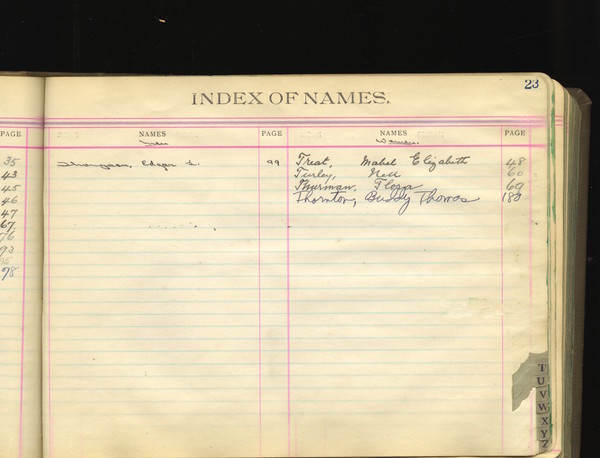 23
INDEX OF NAMES.
PAGE NAMES PAGE NAMES PAGE
Men Women.
35
43
45
46
47
67
76
93
98
Edgar L. 99
Treat, Mabel Elizabeth 48
Turley, Nell 60
Thurman, Flora 69
Thornton, Bussy Thomas
T
U
V
W
X
Y
Z